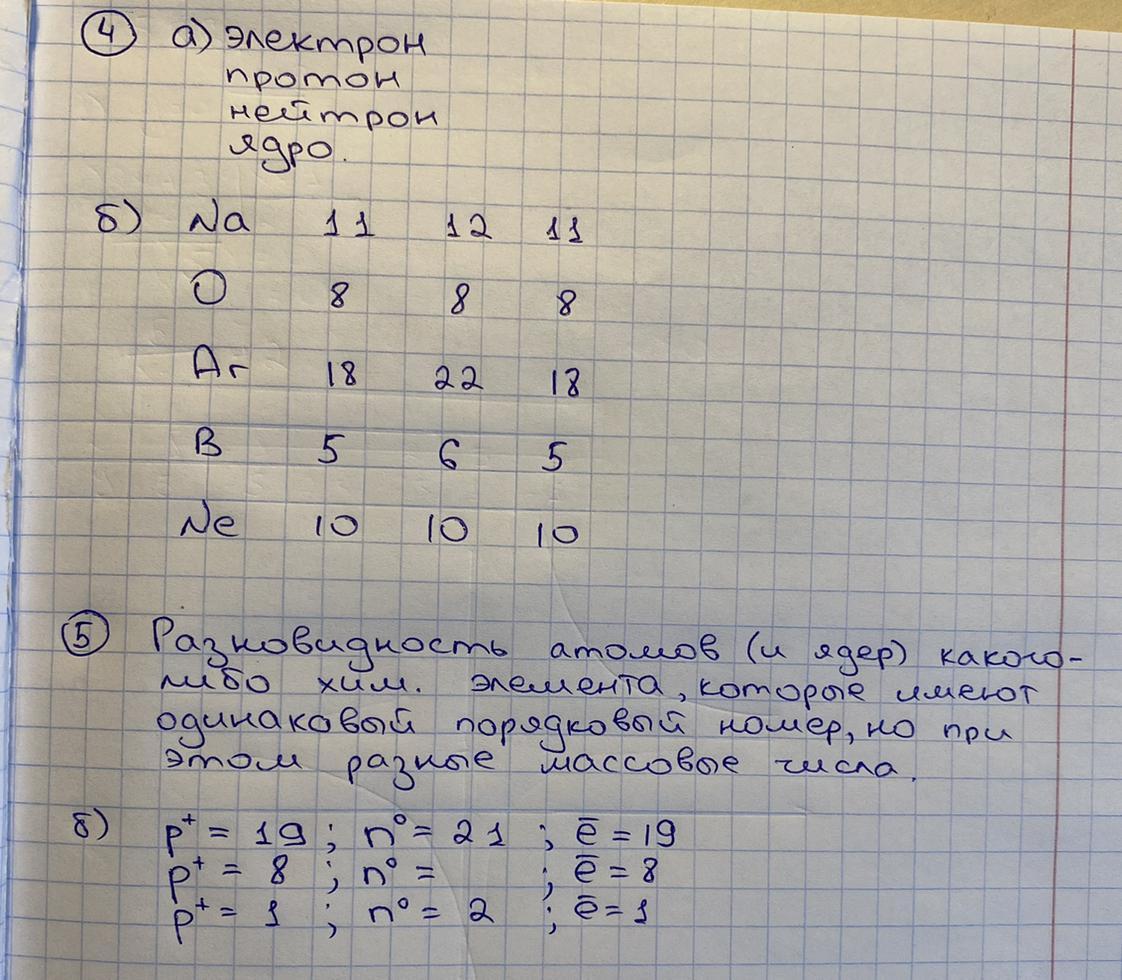 4 а) электрон
протон
нейтрон
ядро.
б) Na 11 12 11
O 8 8 8
Ar 18 22 18
B 5 6 5
Ne 10 10 10
5 Разновидность атомов (и ядер) какого-
либо хим. элемента, которые имеют
одинаковый порядковый номер, но при
этом разные массовые числа.
б) p⁺ = 19 ; n⁰ = 21 ; ē = 19
p⁺ = 8 ; n⁰ = ; ē = 8
p⁺ = 1 ; n⁰ = 2 ; ē = 1